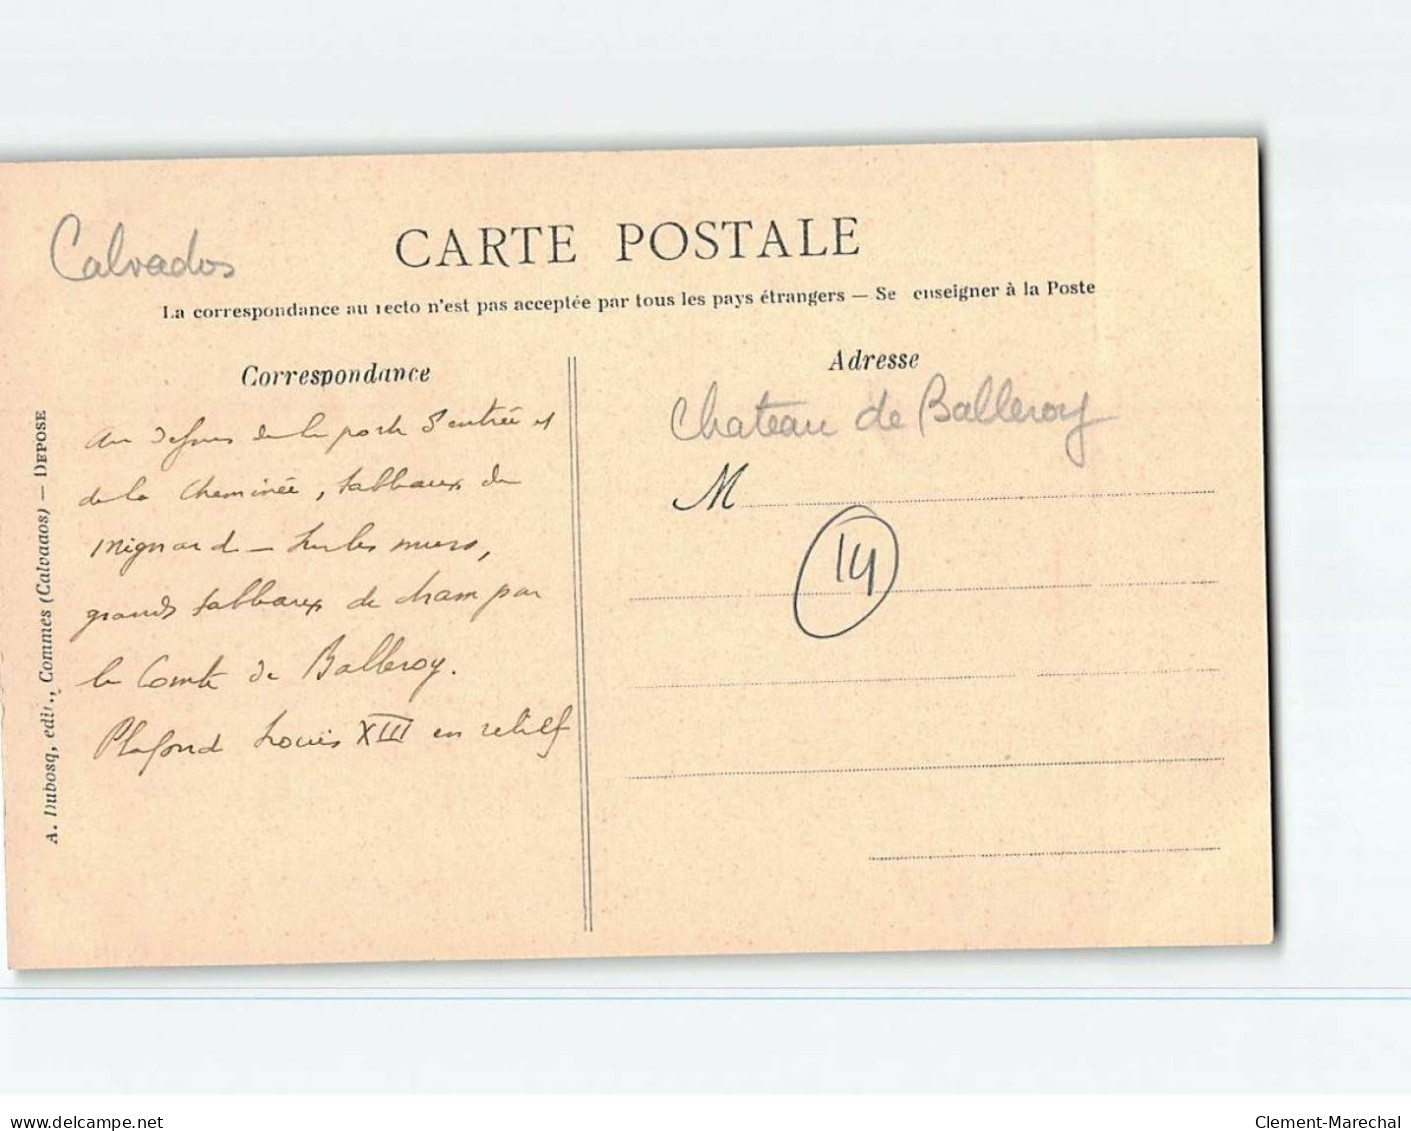 Calvados
CARTE POSTALE
La correspondance au recto n'est pas acceptée par tous les pays étrangers — Se enseigner à la Poste
Correspondance
au dessus de la porte d'entrée et
de la cheminée, tableaux de
mignard — sur les murs,
grands tableaux de chasse par
le Comte de Balleroy.
Plafond Louis XIII en relief
A. Dubosq, edit., Commes (Calvados) — DEPOSE
Adresse
Chateau de Balleroy
M
14
www.delcampe.net
Clement-Marechal